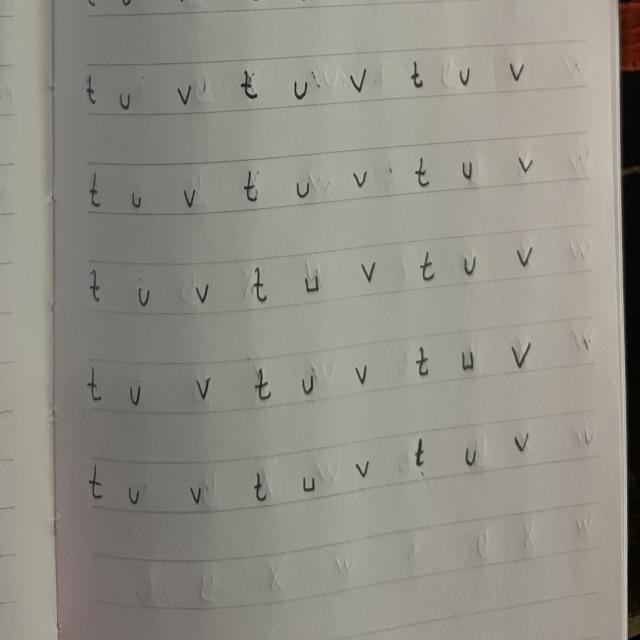 t u v t u v t u v
t u v t u v t u v
t u v t u v t u v
t u v t u v t u v
t u v t u v t u v